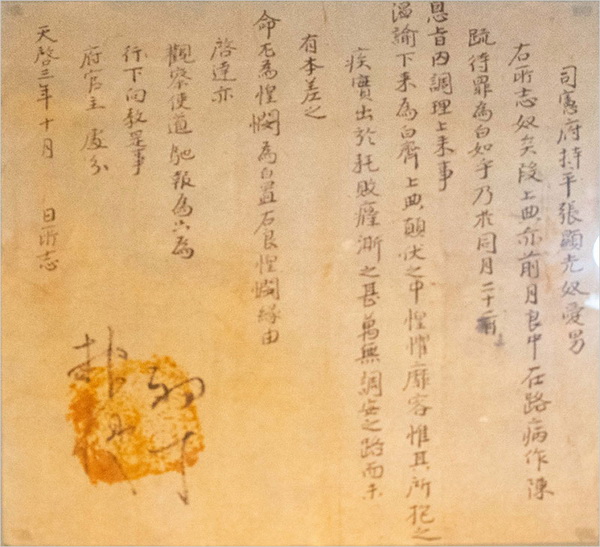 司憲府持平張顯光奴愛男
右所志奴矣段上典亦前月良中在路病作陳
疏待罪爲白如乎乃於同月二十
恩旨內調理上來事
溫諭下來爲白齊上典顚伏之中惶懼靡容惟其所抱之
疾實出於耗敗癃澌之甚萬無調安之路而未
有本差之
命尤爲惶憫爲白置右良惶憫緣由
啓達亦
觀察使道馳報爲只爲
行下向敎是事
府官主 處分
天啓三年十月 日所志